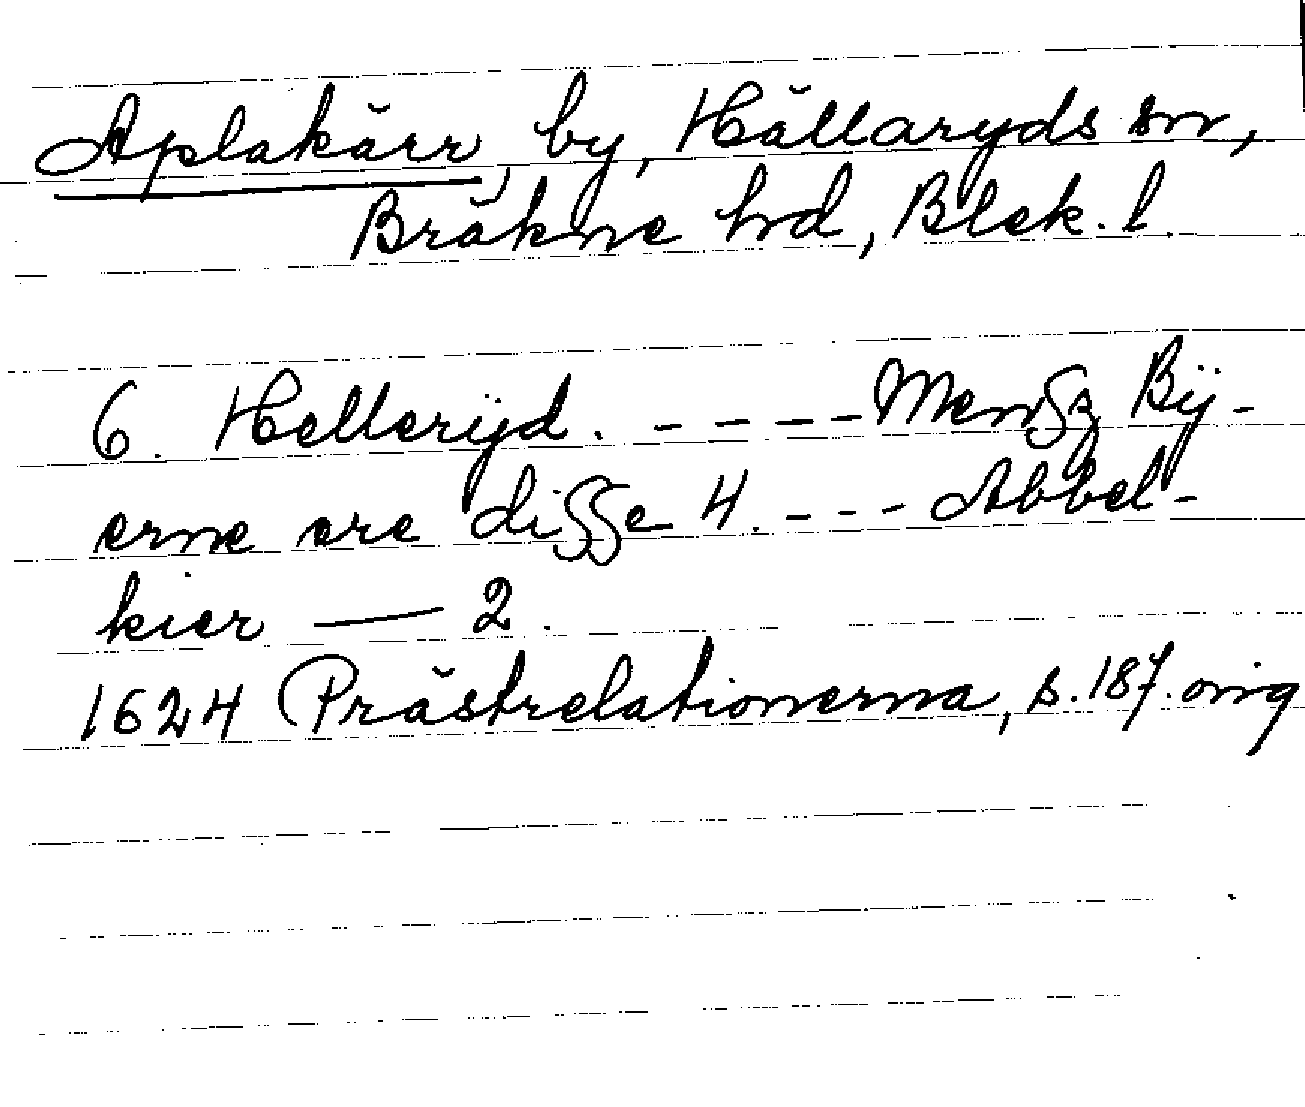 Aplakärr, by, Hällaryds sn,
Bräkne hrd, Blek. l.
6. Hellerÿd. - - - - Menſz Bÿ-
erne ere diſſe 4. - - - Abbel-
kier — 2.
1624 Prästrelationerna, s. 187. orig